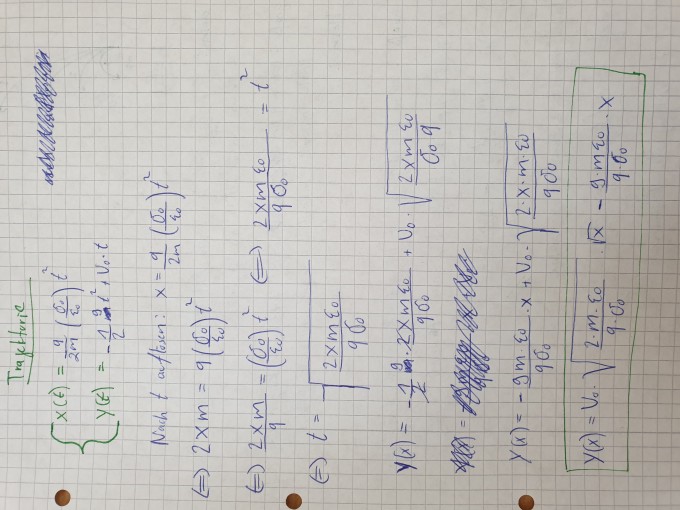 Trajektorie
x(t) = q/2m (σ₀/ε₀) t²
y(t) = -1/2 g t² + v₀·t
Nach t auflösen: x = q/2m (σ₀/ε₀) t²
(=) 2xm = q (σ₀/ε₀) t²
(=) 2xm/q = (σ₀/ε₀) t² (=) 2xmε₀/qσ₀ = t²
(=) t = √(2xmε₀/qσ₀)
y(x) = -1/2 g · 2xmε₀/qσ₀ + v₀ · √(2xmε₀/σ₀q)
y(x) = -gmε₀/qσ₀ · x + v₀ · √(2·x·m·ε₀/qσ₀)
y(x) = v₀ · √(2m·ε₀/q·σ₀) · √x - g·m·ε₀/q·σ₀ · x